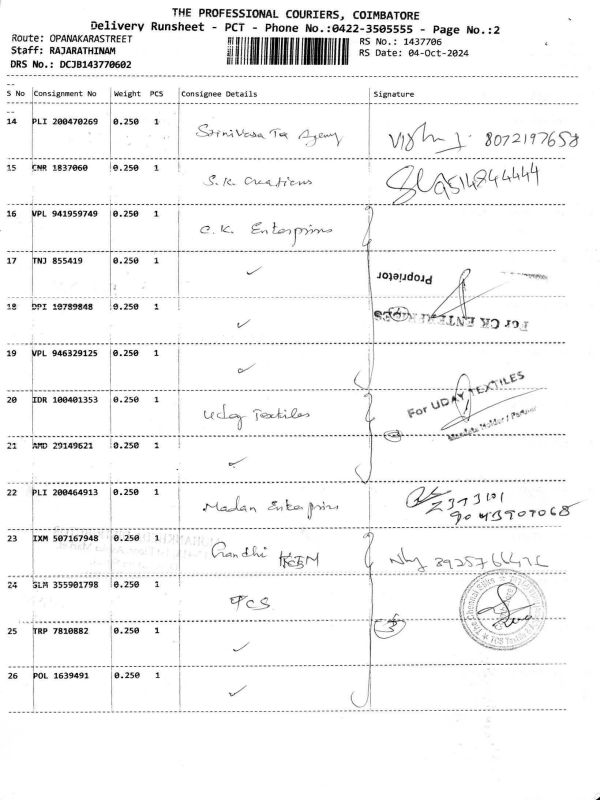 THE PROFESSIONAL COURIERS, COIMBATORE
Delivery Runsheet - PCT - Phone No.:0422-3505555 - Page No.:2
Route: OPANAKARASTREET RS No.: 1437706
Staff: RAJARATHINAM RS Date: 04-Oct-2024
DRS No.: DCJB143770602
S No Consignment No Weight PCS Consignee Details Signature
14 PLI 200470269 0.250 1 Srinivasa Tex Agency 8072197658
15 CNR 1837060 0.250 1 S.K. Creations 9514244444
16 VPL 941959749 0.250 1 C.K. Enterprises
17 TNJ 855419 0.250 1 ✓
Proprietor
18 DPI 10789848 0.250 1 ✓
For CK ENTERPRISES
19 VPL 946329125 0.250 1 ✓
20 IDR 100401353 0.250 1 Uday Textiles
For UDAY TEXTILES
21 AMD 29149621 0.250 1 ✓
22 PLI 200464913 0.250 1 Madan Enterprises
2373101
9043907068
23 IXM 507167948 0.250 1 Gandhi
24 SLM 355901798 0.250 1 TCS
25 TRP 7810882 0.250 1 ✓
26 POL 1639491 0.250 1 ✓